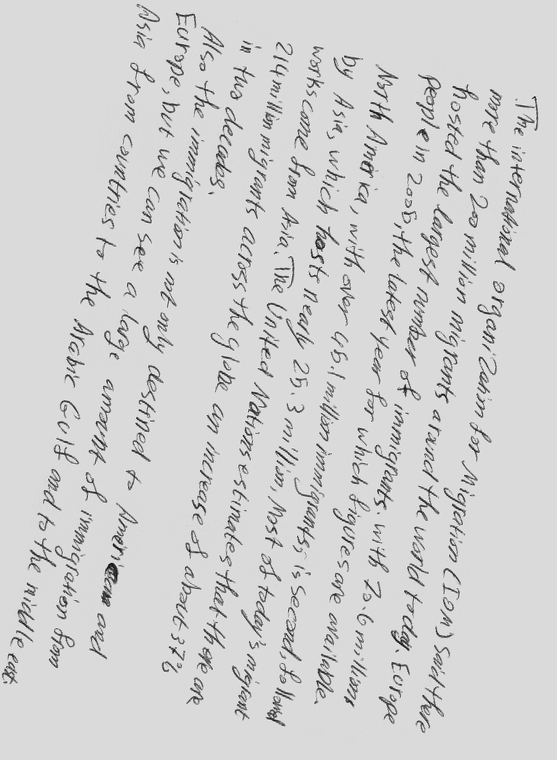 The international organization for Migration (IOM) said there
more than 200 million migrants around the world today. Europe
hosted the largest number of immigrants with 70.6 millions
people in 2005, the latest year for which figures are available.
North America, with over 45.1 million immigrants, is second followed
by Asia, which hosts nearly 25.3 million. Most of today's migrant
works come from Asia. The United Nations estimates that there are
214 million migrants across the globe an increase of about 37%
in two decades.
Also the immigration is not only destined to America and
Europe, but we can see a large amount of immigration from
Asia from countries to the Arabic Gulf and to the middle east.